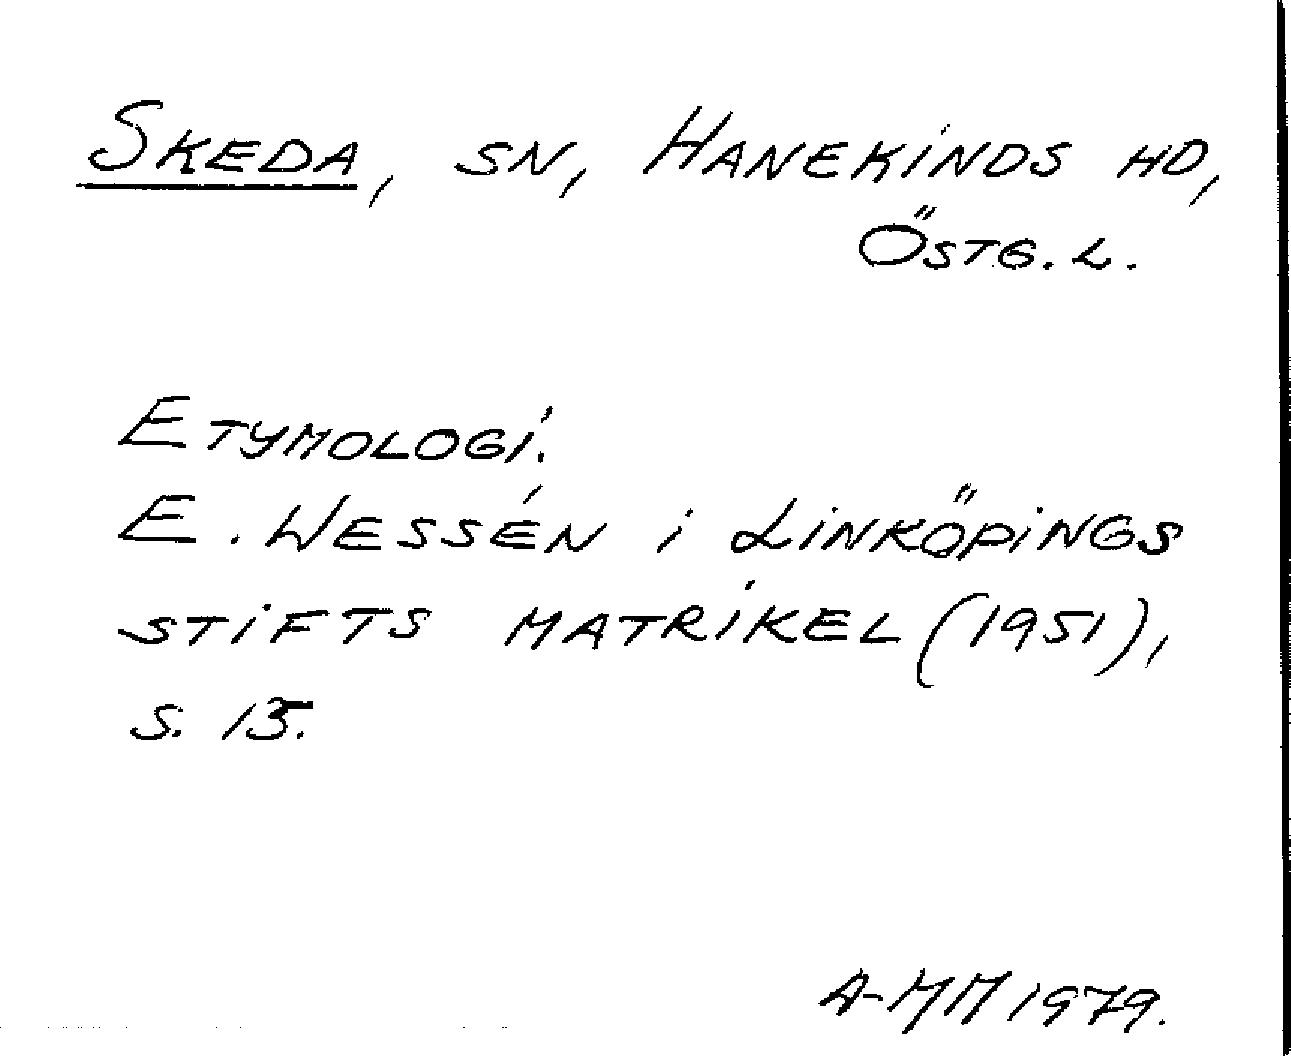 Skeda, sn, Hanekinds hd,
Östg. l.
Etymologi.
E. Wessén i Linköpings
stifts matrikel (1951),
s. 15.
A-MM 1979.